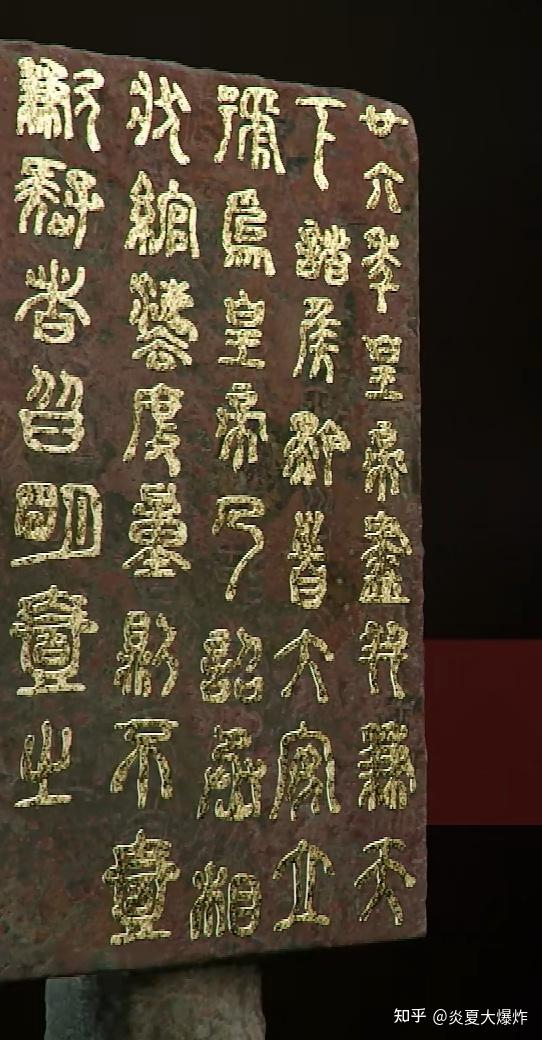 廿六年皇帝盡并兼天
下諸侯黔首大安立
號為皇帝乃詔丞相
狀綰灋度量則不壹
歉疑者皆明壹之
知乎 @炎夏大爆炸